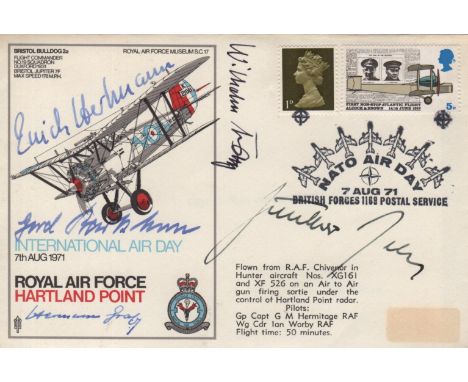 BRISTOL BULLDOG 2a
FLIGHT COMMANDER
No.19 SQUADRON
DUXFORD 1931
BRISTOL JUPITER 7F
MAX SPEED 178 M.P.H.
ROYAL AIR FORCE MUSEUM S.C.17
INTERNATIONAL AIR DAY
7th AUG 1971
ROYAL AIR FORCE
HARTLAND POINT
1D
FIRST NON-STOP ATLANTIC FLIGHT
ALCOCK & BROWN 14/15 JUNE 1919
5D
NATO AIR DAY
7 AUG 71
BRITISH FORCES 1168 POSTAL SERVICE
Flown from R.A.F. Chivenor in
Hunter aircraft Nos. XG161
and XF 526 on an Air to Air
gun firing sortie under the
control of Hartland Point radar.
Pilots:
Gp Capt G M Hermitage RAF
Wg Cdr Ian Worby RAF
Flight time: 50 minutes.